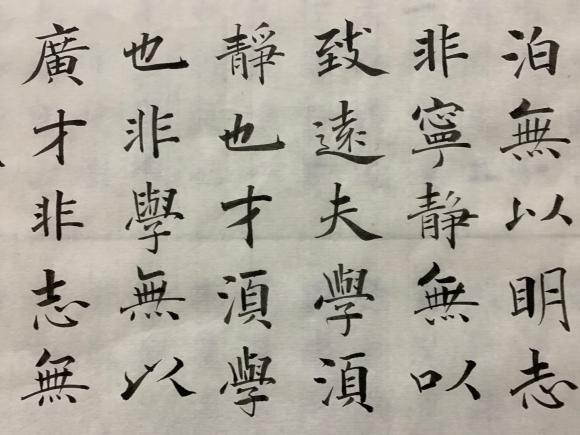 泊無以明志
非寧靜無以
致遠夫學須
靜也才須學
也非學無以
廣才非志無